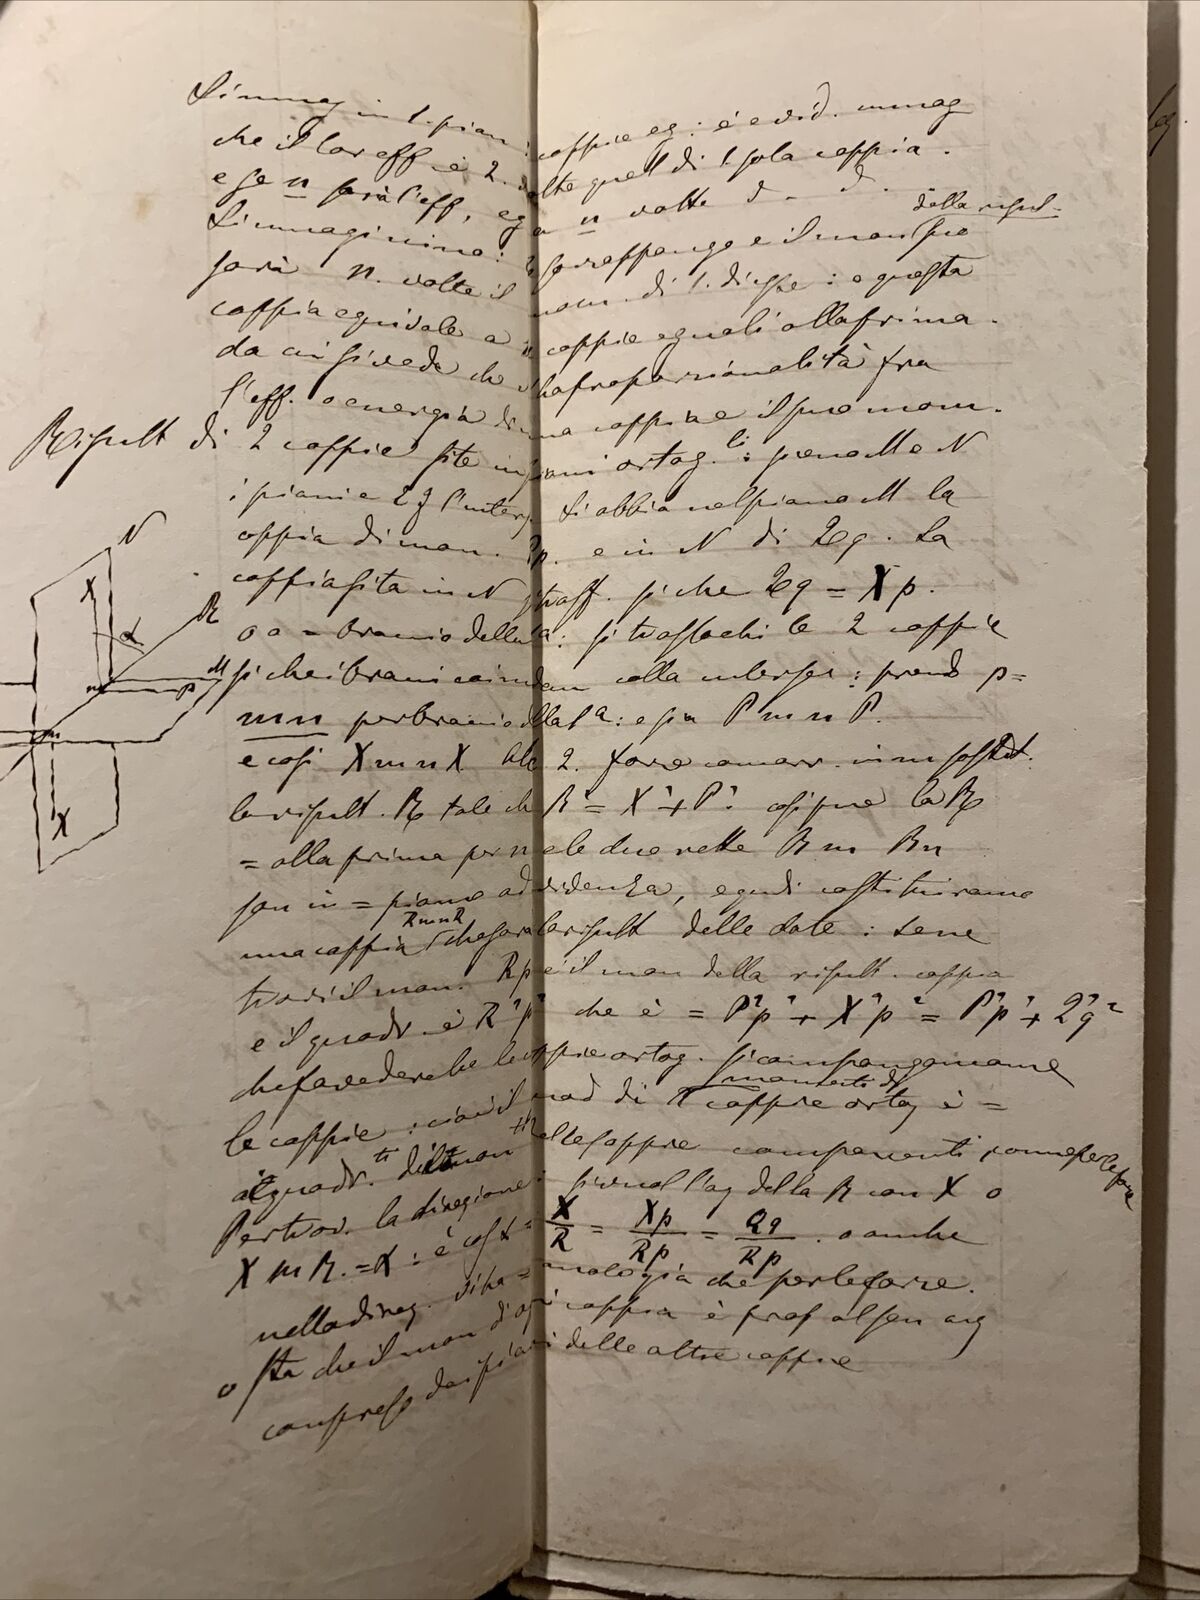 S'immag in 1. pian: 2 coppie eg: è evid. immag
che il lor eff è 2. volte quell di 1 sola coppia.
e se n sarà l'eff. eg a n volte d - d.
della risult.
S'immaginino: sovrappongo e il mom suo
sarà n. volte il mom. di 1. di esse: e questa
coppia equivale a n coppie eguali alla prima.
da cui si vede che v'ha proporzionalità fra
l'eff. o energia di una coppia e il suo mom.
Risult di 2 coppie site in piani ortog.li: sieno M e N
i piani e l'inters. Si abbia nel piano M la
coppia di mom. Pp. e in N di Qq. La
coppia sita in N si trasf. si che Qq = Xp.
o a = braccio della 1a: si traslochi le 2 coppie
si che i bracci coincidan colla interses: prend p=
mn per braccio della 1a: e sia PmnP.
e così XmnX. Alle 2. forze concorr. in m sostit.
la risult. R tale che R² = X² + P² così pure la R
= alla prima per n e le due rette Rm Rn
son in = piano ad evidenza, e qudi costituiranno
RmnR
una coppia che sarà la risult delle date: se ne
trovi il mom. Rp è il mom della risult. coppia
e il quadr. è R²p² che è = P²p² + X²p² = P²p² + Q²q²
che fa vedere che le coppie ortog. si compongono come
momenti di
le coppie: cioè il quad di coppie ortog è =
ai quadr.ti dei mom delle coppie componenti come per le forze
Per trov. la direzione: prend l'ang della R con X o
XmR. = α: è cos α = X/R = Xp/Rp = Qq/Rp. o anche
nella direz. v'ha = analogia che per le forze.
o sta che il mom d'ogni coppia è prop al sen ang
compreso dai piani delle altre coppie
N
X
α
R
M
n
P
m
X